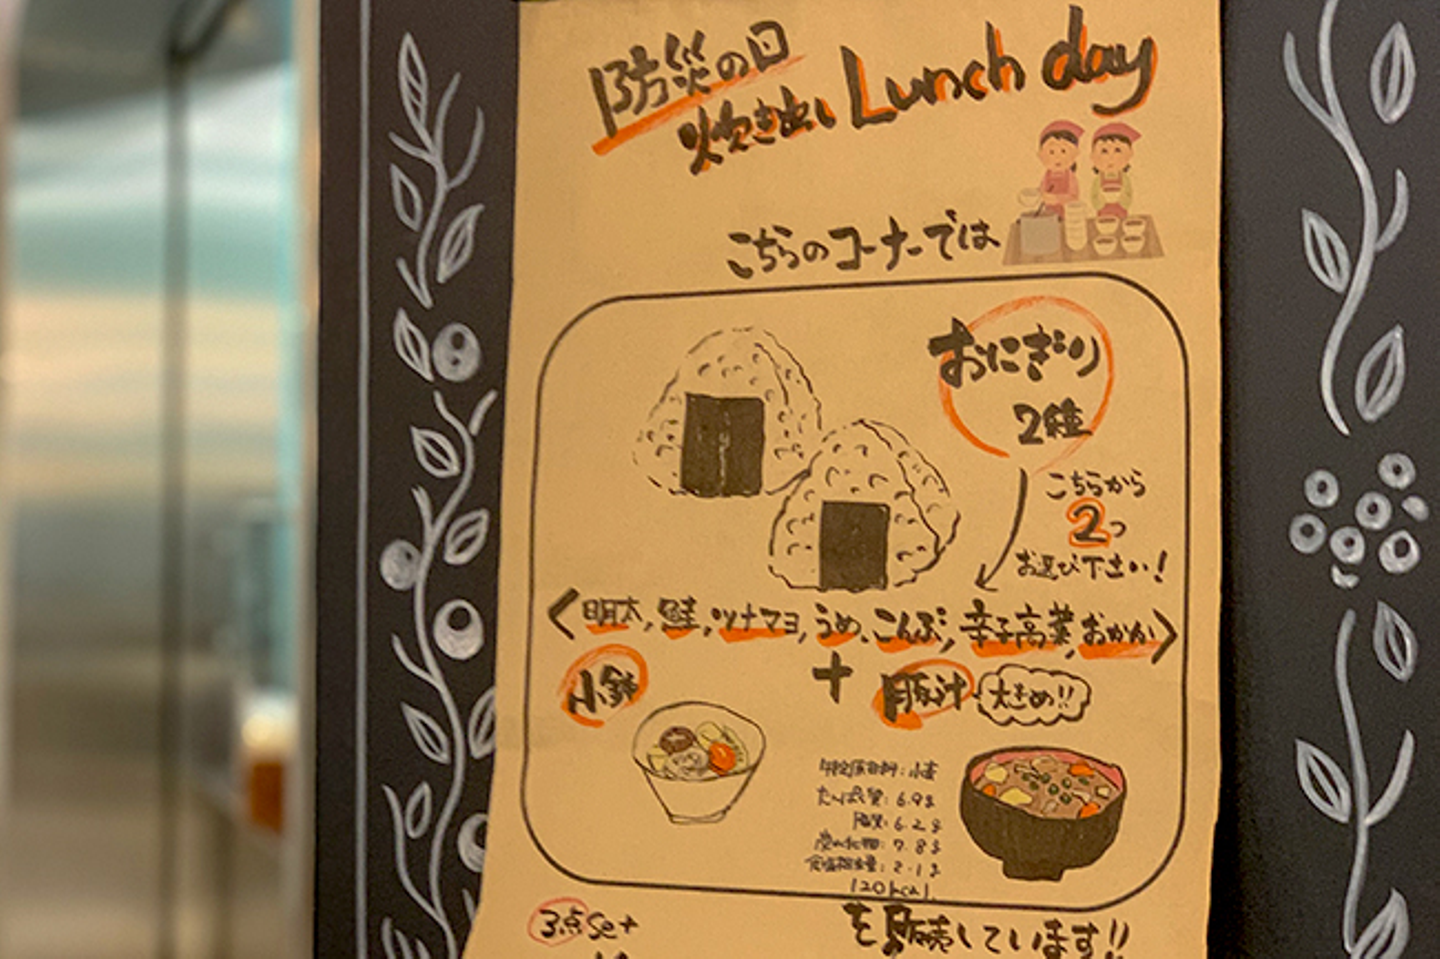 防災の日
炊き出し Lunch day
こちらのコーナーでは
おにぎり
2種
こちらから
2つ
お選び下さい!
<明太, 鮭, ツナマヨ, うめ, こんぶ, 辛子高菜, おかか>
小鉢
+
豚汁 大きめ!!
特定原材料:小麦
たんぱく質:6.9g
脂質:6.2g
炭水化物:7.8g
食塩相当量:2.1g
120kcal
3点Set
を販売しています!!